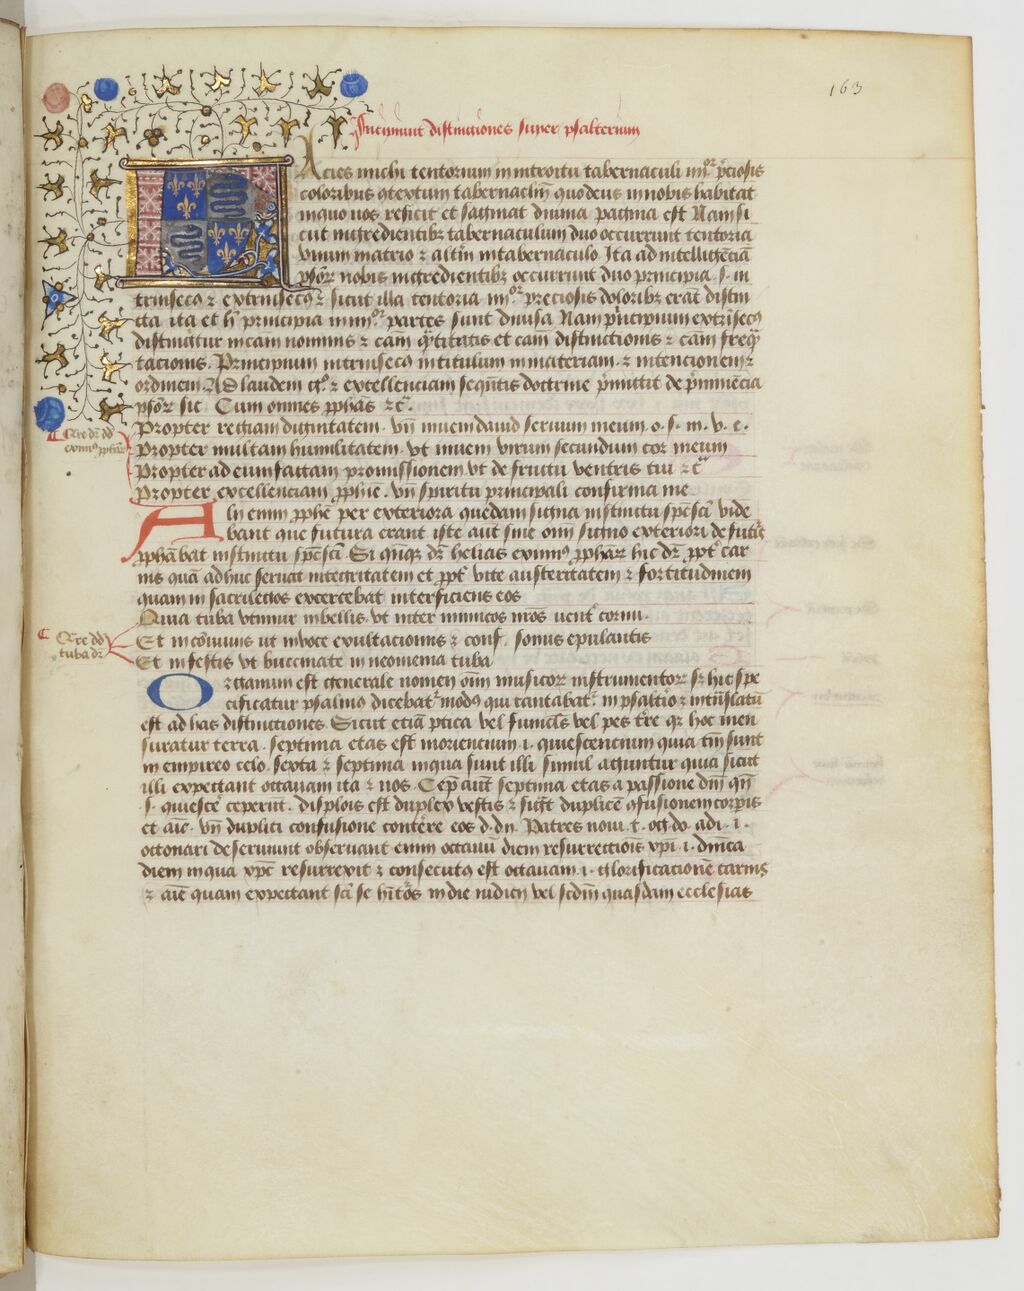 163
Incipiunt distinctiones super psalterium
Facies michi tentorium in introitu tabernaculi iiiior p̄ciosis
coloribus ꝯtextum tabernaclm̄ quo deus in nobis habitat
in quo nos reficit et saginat diuina pagina est Nam si
cut ingredientibꝫ tabernaculum duo occurrunt tentoria
vnum in atrio ⁊ alt̄m in tabernaculo. Ita ad intelligēciā
psōꝝ nobis ingredientibꝫ occurrunt duo principia .s. in
trinsecꝰ ⁊ extrinsecꝰ ⁊ sicut illa tentoria iiiior preciosis coloribꝫ erāt distin
cta ita et h̄ principia in iiiior partes sunt diuisa Nam p̄ncipium extrīsecꝰ
distinguitur in cām nominis ⁊ cām q̄titatis et cām distinctionis ⁊ cām freq̄
tacionis. Principium intrinsecꝰ in titulum in materiam. ⁊ intencionem ⁊
ordinem. Ad laudem ⁊ excellenciam seq̄ntis doctrine p̄mittit de p̄minēcia
psōꝝ sic. Cum omnes ꝓphās ⁊c̄.
Propter regiam dignitatem. vn̄ inueni dauid seruum meum. o. s. m. v. e.
Propter multam humilitatem. vt inueni virum secundum cor meum
Propter ad eum factam promissionem vt de fructu ventris tui ⁊c̄
Propter excellenciam ꝓphīe. vn̄ spiritu principali confirma me
Alij enim ꝓphē per exteriora quedam signa instinctu sp̄s sc̄i vide
bant que futura erant iste aut̄ sine om̄i signo exteriori de futr̄is
ꝓphābat instinctu sp̄s sc̄i. Si q̄ dr̄ helias eximiꝰ ꝓphaꝝ hic dr̄ ꝓpt̄ car
nis quā adhuc seruat integritatem et ꝓpt̄ vite austeritatem ⁊ fortitudinem
quam in sacrilegos excercebat interficiens eos
Quia tuba vtimur in bellis. vt inter inimicos nr̄os
Et in cōuiuiis ut in voce exultacionis ⁊ conf. sonus epulantis
Et in festis vt buccinate in neomenia tuba
Organum est generale nomen om̄i musicoꝝ instrumentoꝝ sꝫ hic spe
cificatur psalmꝰ dicebat modꝰ qui cantabat in psalt̄io ⁊
est ad has distinctiones Sicut etiā ptica vel funiclꝰ vel pes tr̄re qꝫ hoc men
suratur terra. septima etas est morientium .i. quiescencium quia tm̄ sunt
in empireo celo. sexta ⁊ septima in qua sunt illi simul agūtur quia sicut
illi expectant octauam ita ⁊ nos. Cep̄ aut̄ septima etas a passione dn̄i qn̄
.s. quiesce᷑ ceperūt. displois est duplex vestis ⁊ sigt̄ duplicē ꝯfusionem corpis
et aīe. vn̄ duplici confusione conte᷑re eos d. dn̄. Patres noui. t. oc̄. do. adi. .i.
octonari deseruiunt obseruant enim octauū diem resurrectiōis xp̄i .i. dn̄ica
diem in qua xp̄c resurrexit ⁊ consecutꝰ est octauam .i. glorificacionē carnis
⁊ aīe quam expectant sc̄i se in die iudicij vel sc̄dm quasdam ecclesias
Qre dr̄ dd
eximiꝰ ꝓpha
Qre dd
tuba dr̄